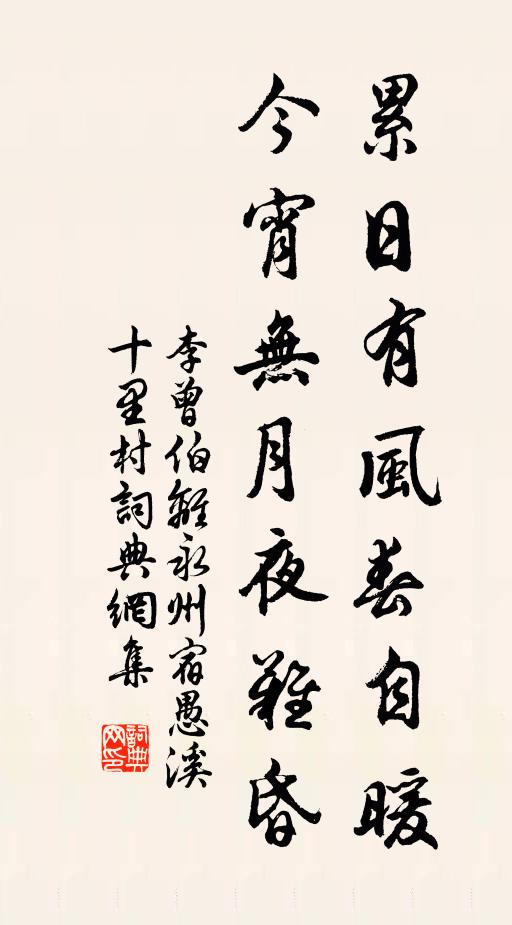 累日有風春自暖
今宵無月夜難昏
李曾伯離永州宿愚溪
十里村詞典網集
詞典网印